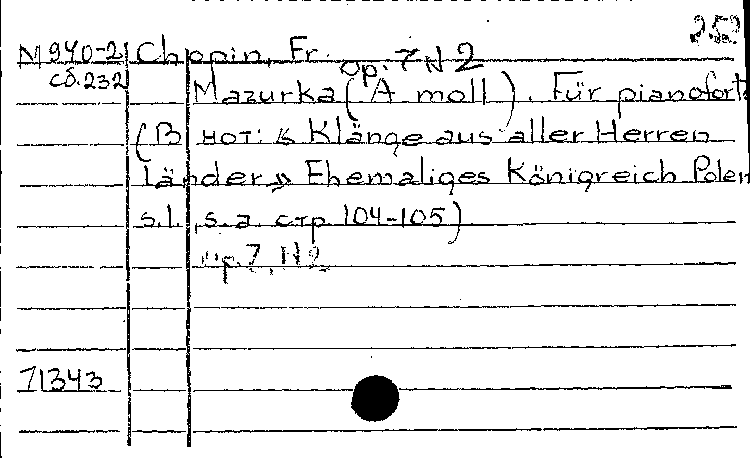 252
М940-2 Chopin, Fr. op. 7 N 2
сб.232 Mazurka (A moll). Für pianofort
(В нот: "Klänge aus aller Herren
Länder" Ehemaliges Königreich Polen
s.l., s.a. стр 104-105)
op. 7, N 2
71343